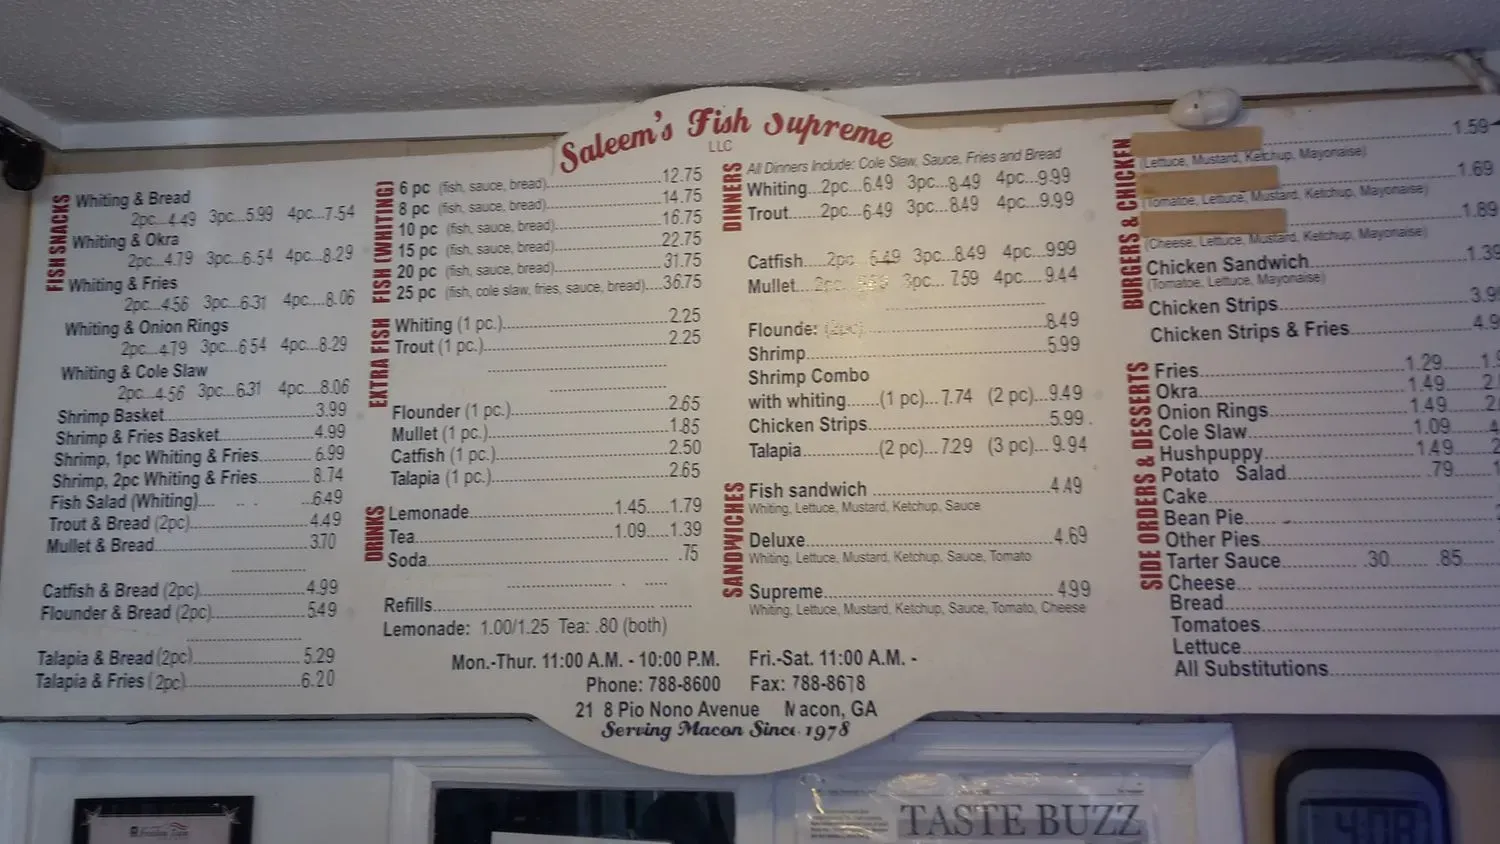 Saleem's Fish Supreme
LLC
FISH SNACKS
Whiting & Bread
2pc...4.49 3pc...5.99 4pc...7.54
Whiting & Okra
2pc...4.79 3pc...6.54 4pc...8.29
Whiting & Fries
2pc...4.56 3pc...6.31 4pc....8.06
Whiting & Onion Rings
2pc...4.79 3pc...6.54 4pc...8.29
Whiting & Cole Slaw
2pc...4.56 3pc...6.31 4pc...8.06
Shrimp Basket...3.99
Shrimp & Fries Basket...4.99
Shrimp, 1pc Whiting & Fries...6.99
Shrimp, 2pc Whiting & Fries...8.74
Fish Salad (Whiting)...6.49
Trout & Bread (2pc)...4.49
Mullet & Bread...3.70
Catfish & Bread (2pc)...4.99
Flounder & Bread (2pc)...5.49
Talapia & Bread (2pc)...5.29
Talapia & Fries (2pc)...6.20
FISH (WHITING)
6 pc (fish, sauce, bread)...12.75
8 pc (fish, sauce, bread)...14.75
10 pc (fish, sauce, bread)...16.75
15 pc (fish, sauce, bread)...22.75
20 pc (fish, sauce, bread)...31.75
25 pc (fish, cole slaw, fries, sauce, bread)....36.75
EXTRA FISH
Whiting (1 pc.)...2.25
Trout (1 pc.)...2.25
Flounder (1 pc.)...2.65
Mullet (1 pc.)...1.85
Catfish (1 pc.)...2.50
Talapia (1 pc.)...2.65
DRINKS
Lemonade...1.45.....1.79
Tea...1.09.....1.39
Soda....75
Refills...
Lemonade: 1.00/1.25 Tea: .80 (both)
DINNERS
All Dinners Include: Cole Slaw, Sauce, Fries and Bread
Whiting...2pc...6.49 3pc...8.49 4pc...9.99
Trout......2pc...6.49 3pc...8.49 4pc...9.99
Catfish....2pc 6.49 3pc...8.49 4pc...9.99
Mullet... 3pc... 7.59 4pc....9.44
Flounde: (2pc)...8.49
Shrimp...5.99
Shrimp Combo
with whiting......(1 pc)...7.74 (2 pc)...9.49
Chicken Strips...5.99
Talapia...(2 pc)...7.29 (3 pc)...9.94
SANDWICHES
Fish sandwich ...4.49
Whiting, Lettuce, Mustard, Ketchup, Sauce
Deluxe...4.69
Whiting, Lettuce, Mustard, Ketchup, Sauce, Tomato
Supreme...4.99
Whiting, Lettuce, Mustard, Ketchup, Sauce, Tomato, Cheese
BURGERS & CHICKEN
1.59
(Lettuce, Mustard, Ketchup, Mayonaise)
1.69
(Tomatoe, Lettuce, Mustard, Ketchup, Mayonaise)
1.89
(Cheese, Lettuce, Mustard, Ketchup, Mayonaise)
Chicken Sandwich...1.39
(Tomatoe, Lettuce, Mayonaise)
Chicken Strips...
Chicken Strips & Fries...
SIDE ORDERS & DESSERTS
Fries...1.29
Okra...1.49
Onion Rings...1.49
Cole Slaw...1.09
Hushpuppy...1.49
Potato Salad....79
Cake...
Bean Pie...
Other Pies...
Tarter Sauce....30.......85
Cheese...
Bread...
Tomatoes...
Lettuce...
All Substitutions...
Mon.-Thur. 11:00 A.M. - 10:00 P.M. Fri.-Sat. 11:00 A.M. -
Phone: 788-8600 Fax: 788-8678
21 8 Pio Nono Avenue Macon, GA
Serving Macon Since 1978
TASTE BUZZ
4:08